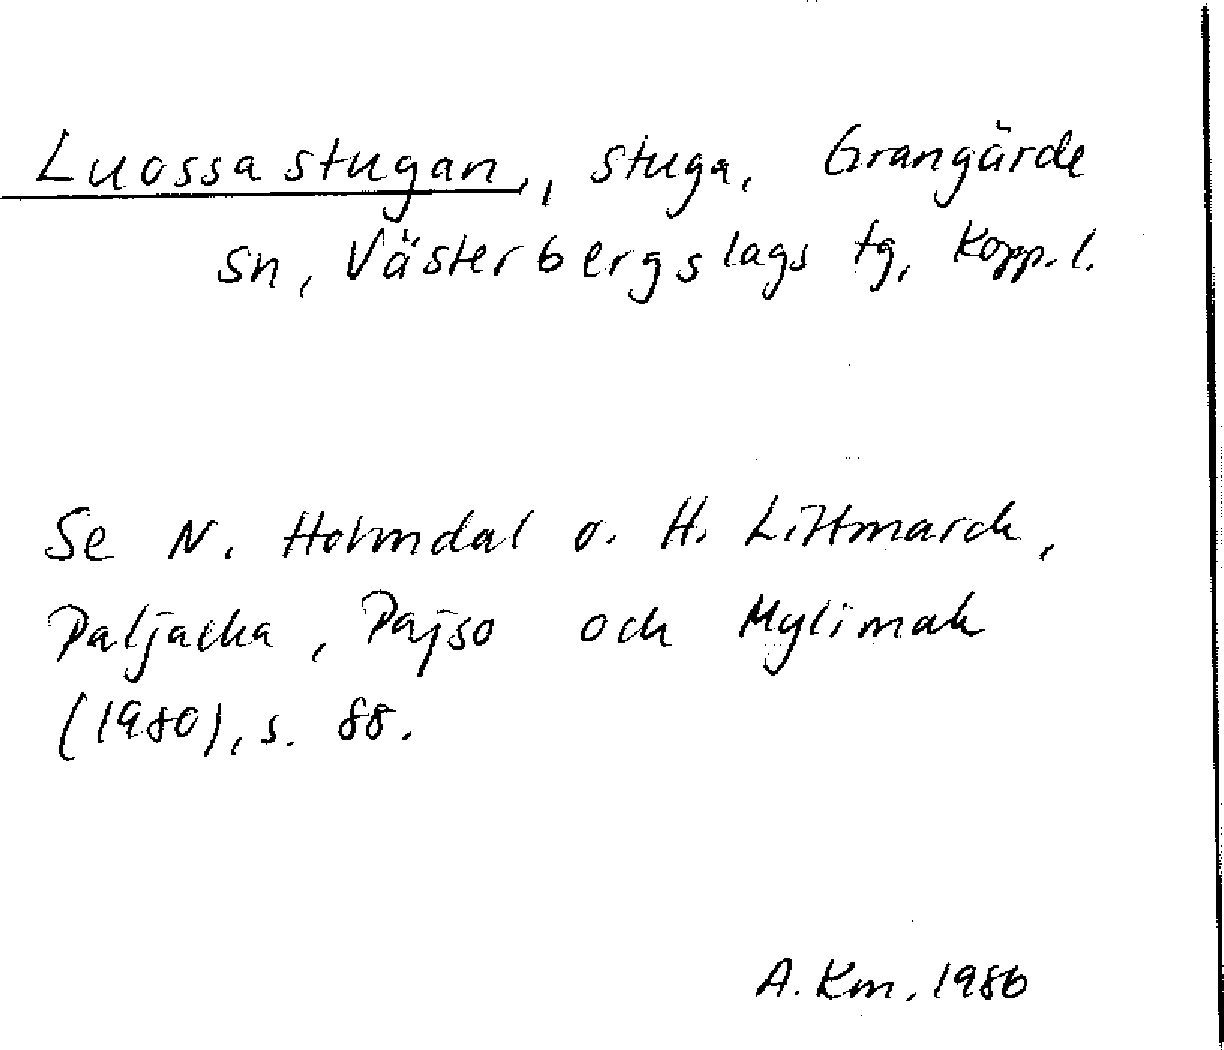 Luossastugan, stuga, Grangärde
sn, Västerbergslags tg, Kopp. l.
Se N. Holmdal o. H. Littmarck,
Paljacka, Pajso och Mylimak
(1980), s. 88.
A. Km, 1986